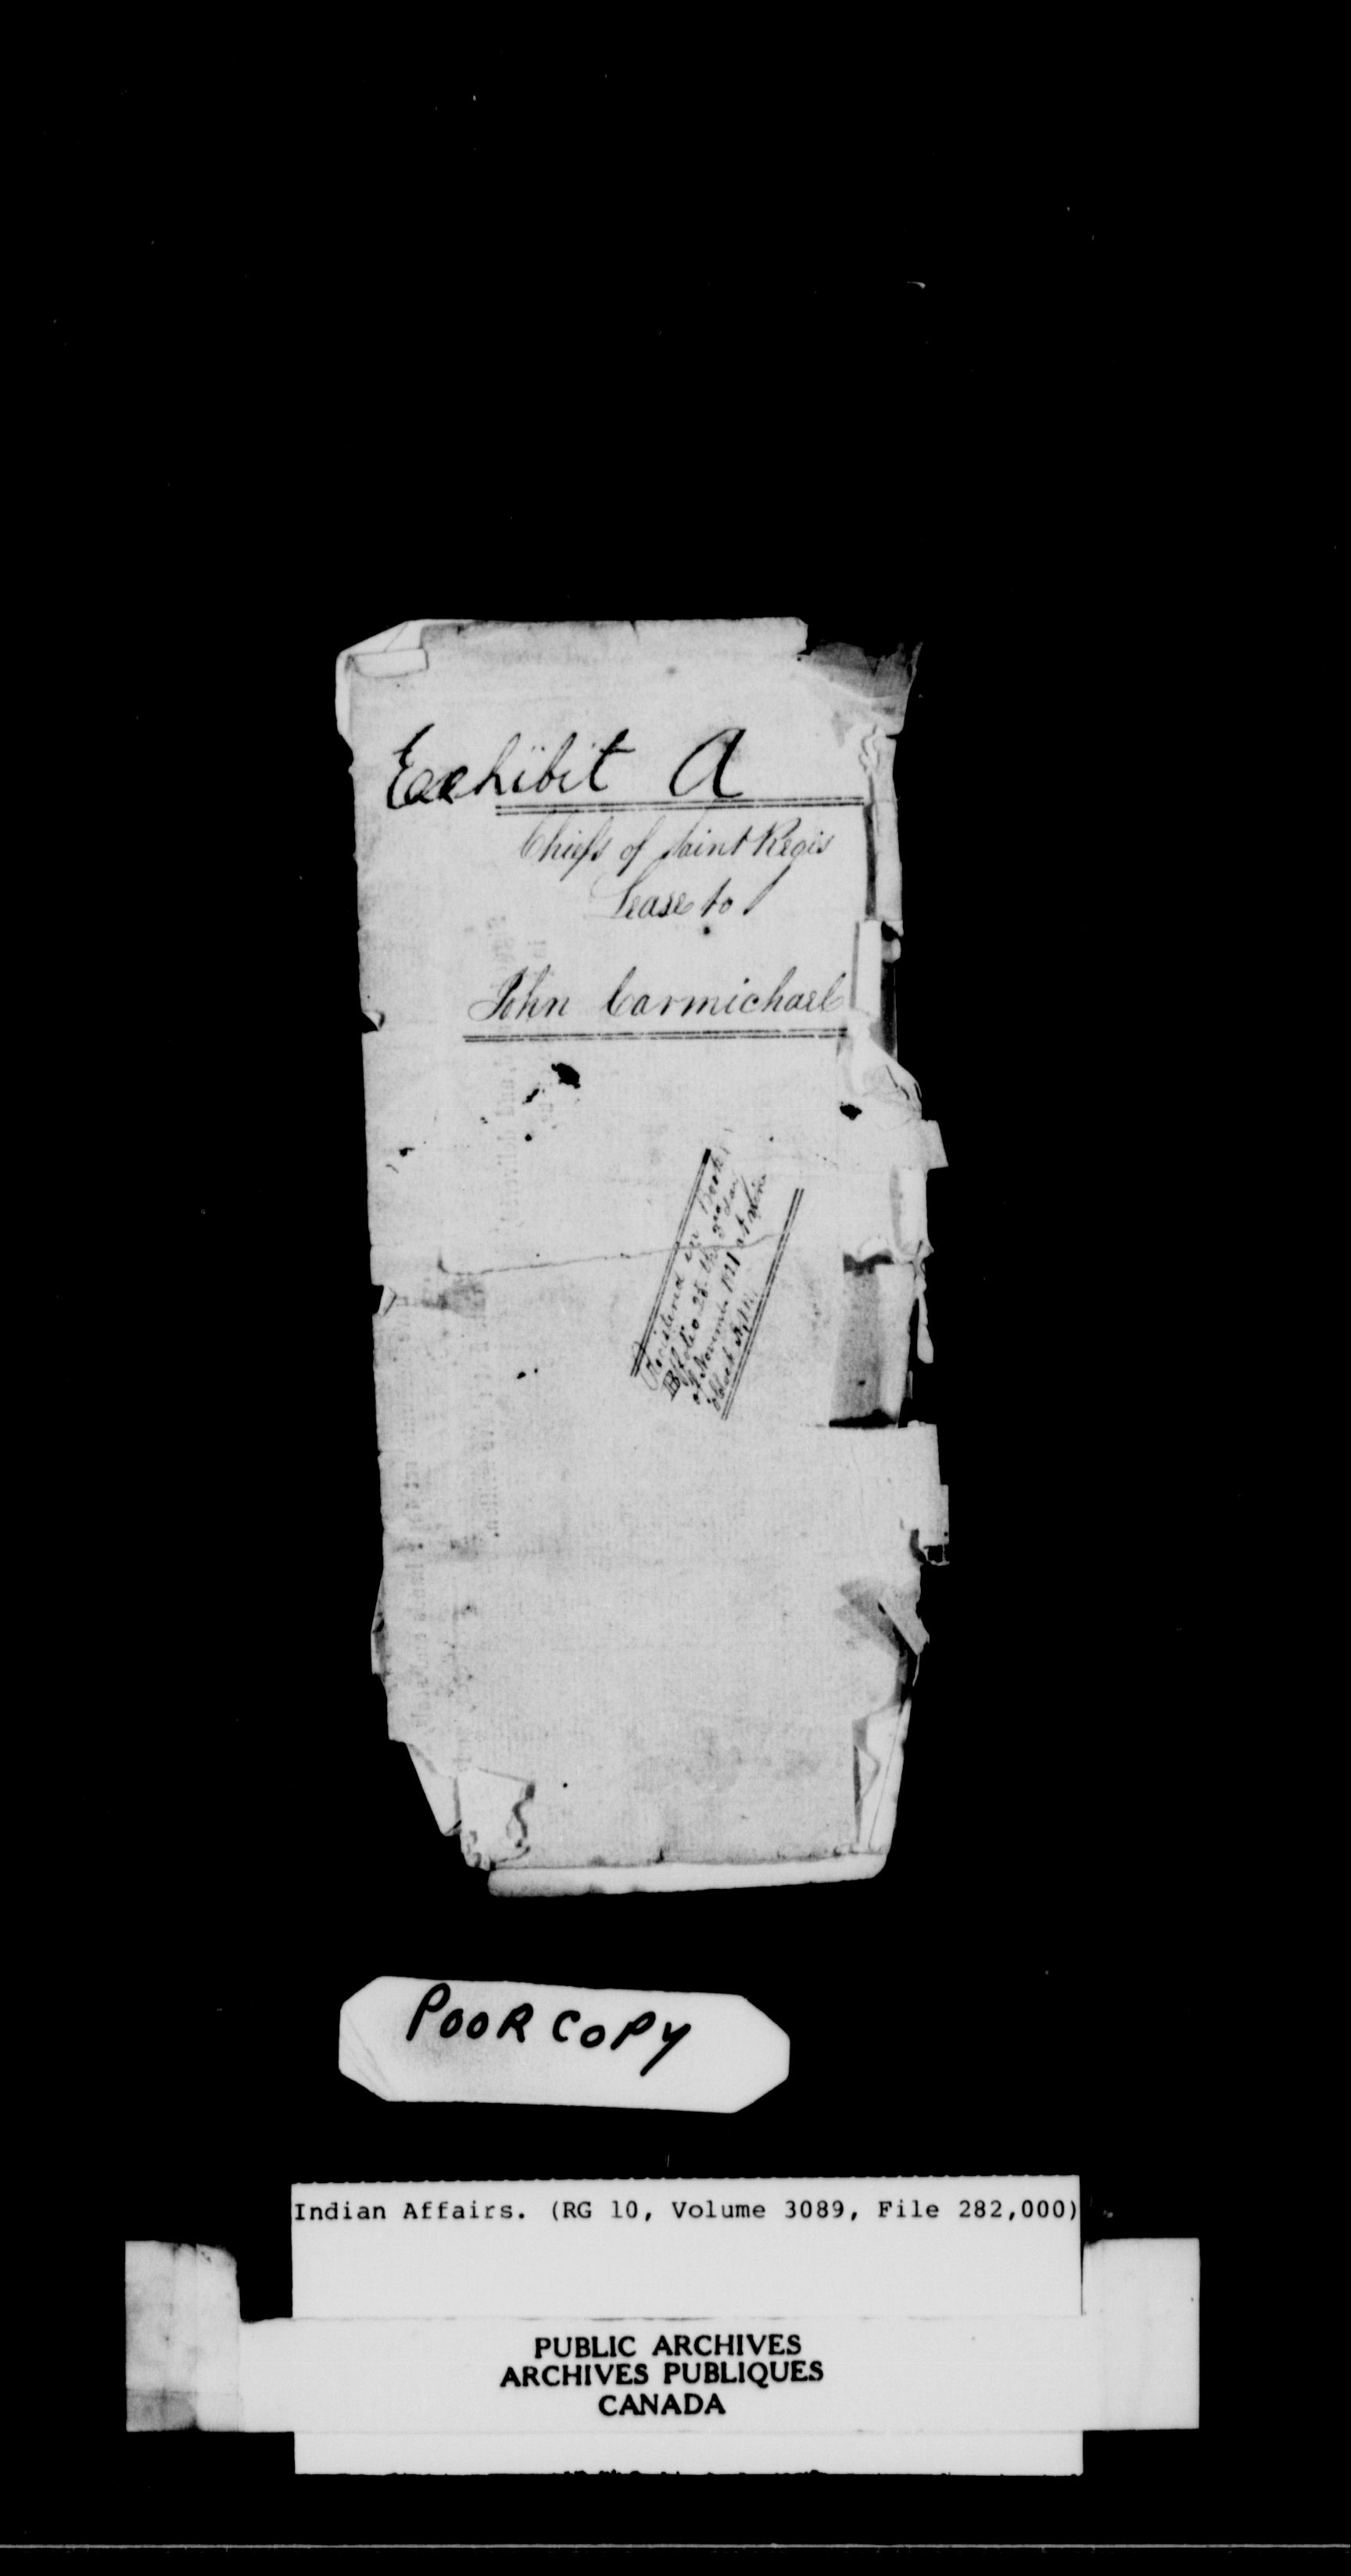 Exhibit A
Chiefs of Saint Regis
Lease to
John Carmichael
Registered in Book
B folio 28 the 2nd day
of November 1821 at
o'clock
POOR COPY
Indian Affairs. (RG 10, Volume 3089, File 282,000)
PUBLIC ARCHIVES
ARCHIVES PUBLIQUES
CANADA